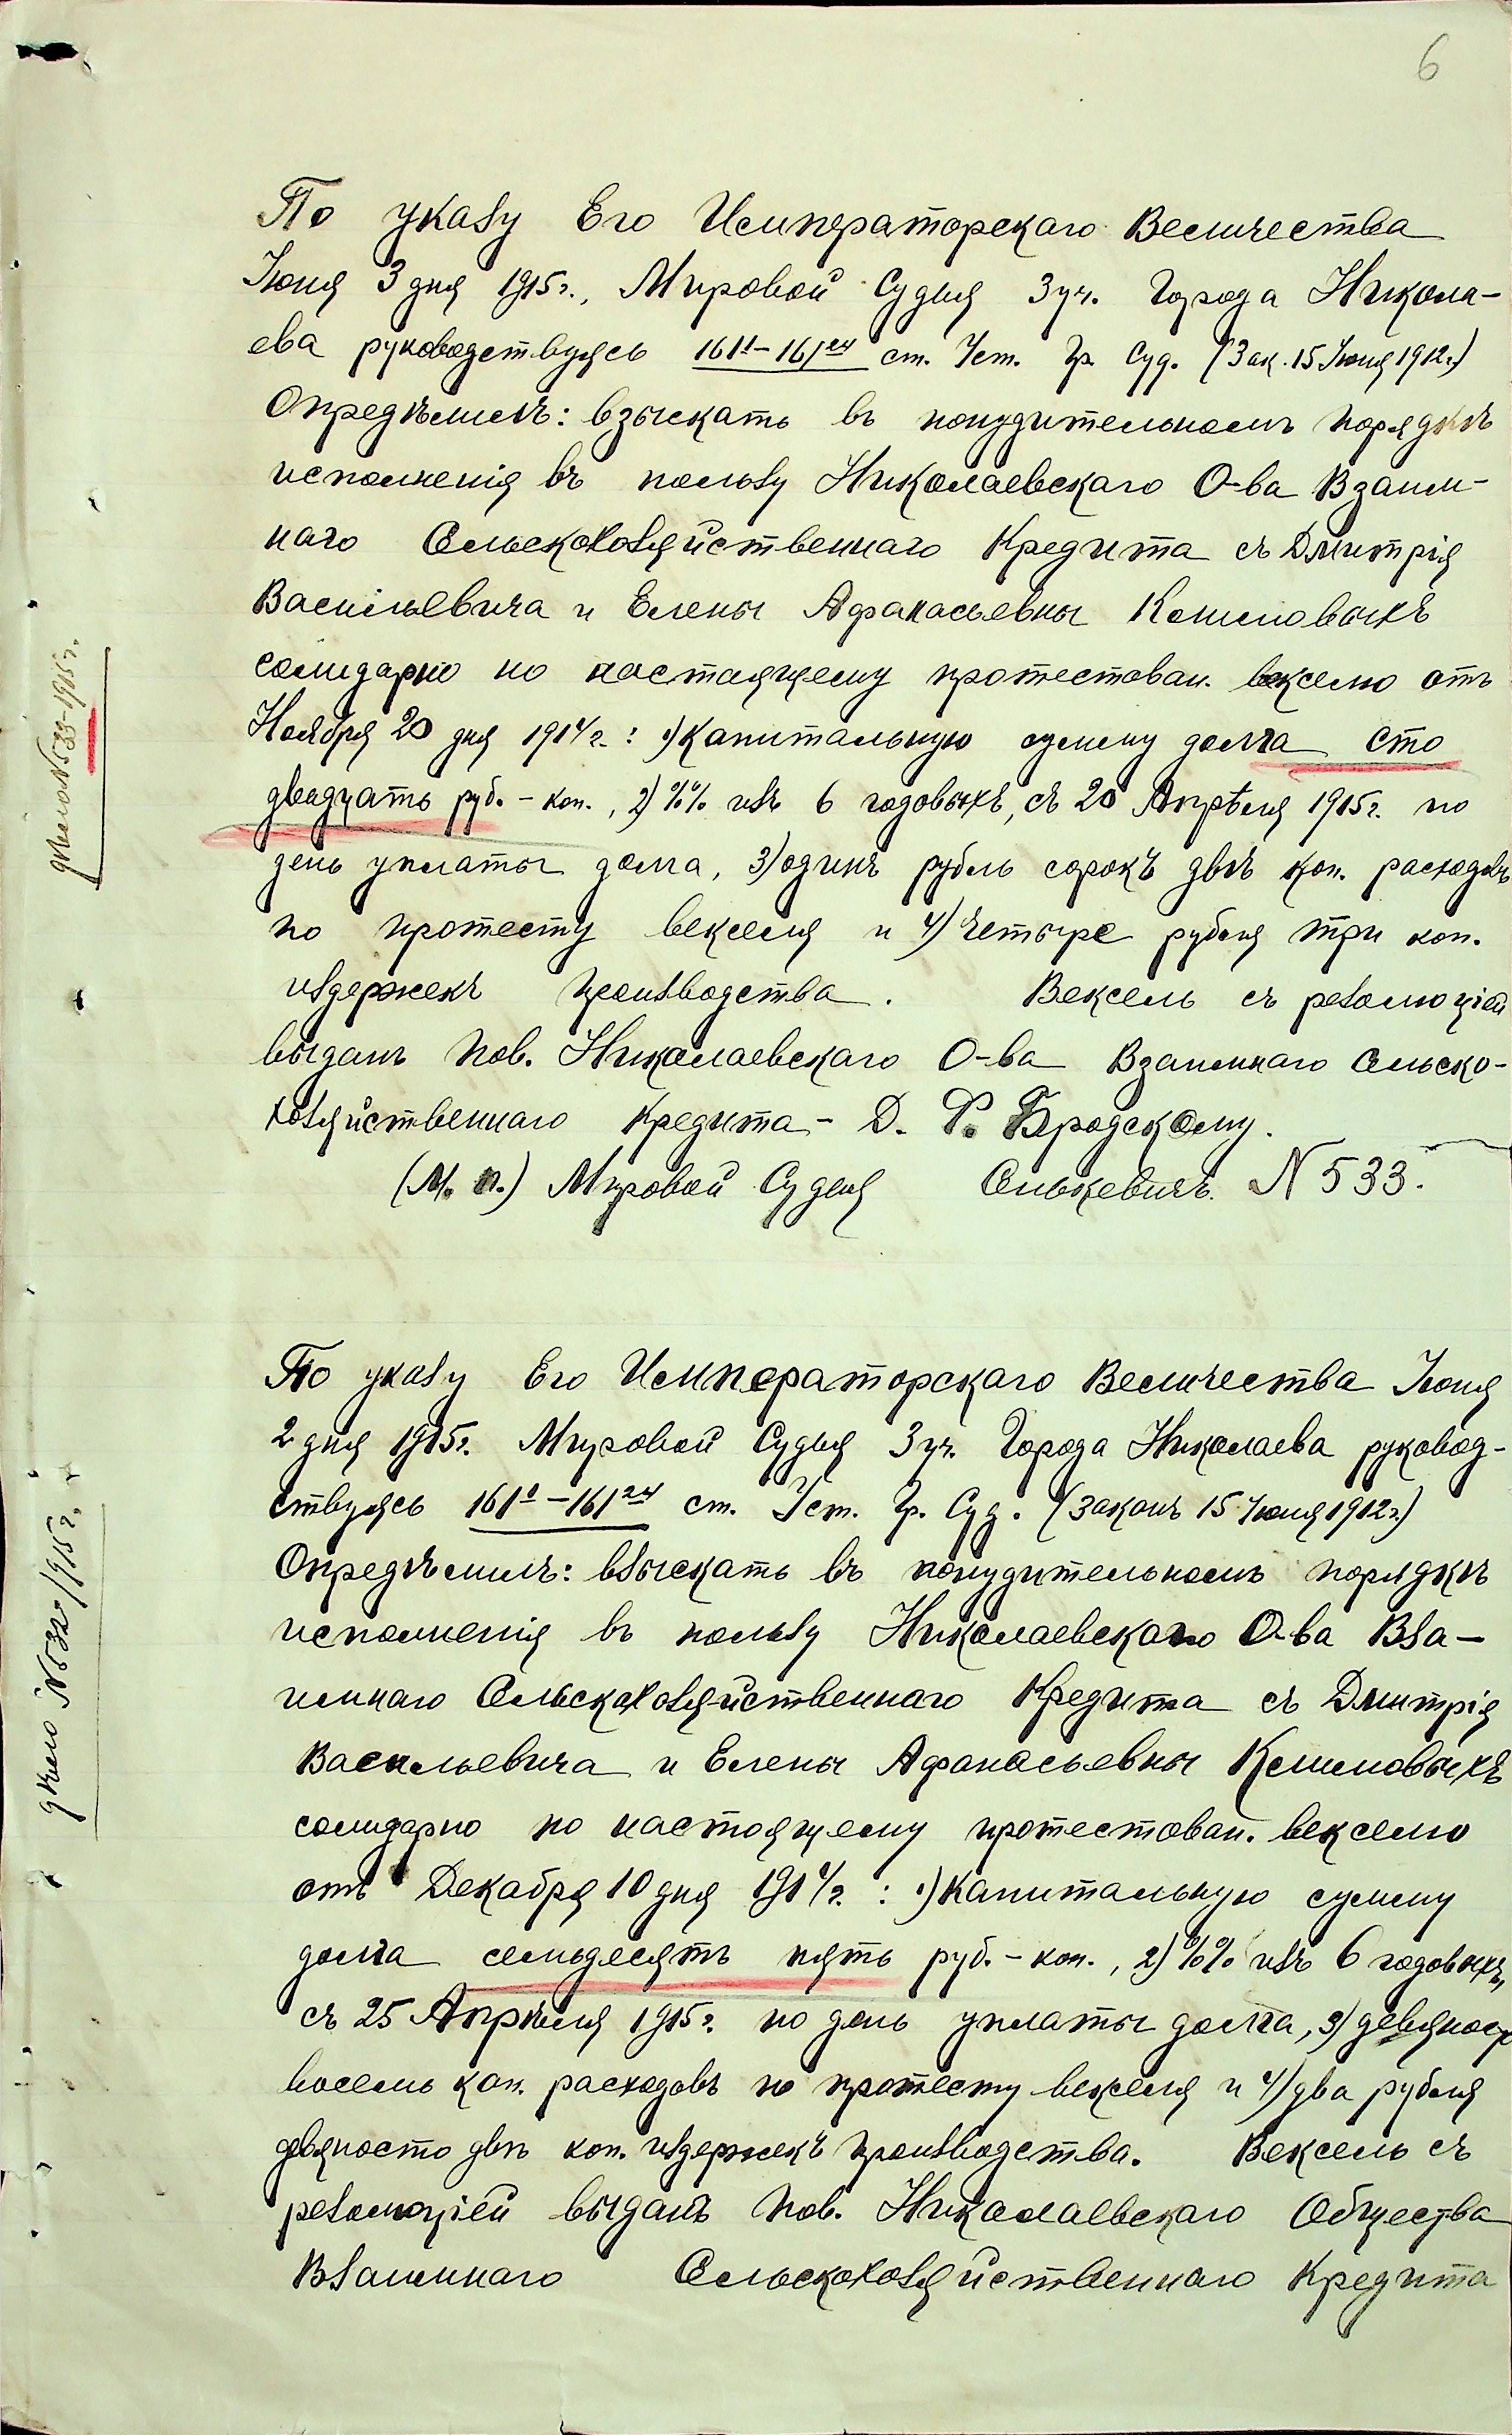 6
По указу Его Императорскаго Величества
Іюня 3 дня 1915 г., Мировой Судья 3 уч. Города Никола-
ева руководствуясь 161¹-161²⁴ ст. Уст. Гр. Суд. (Зак. 15 Іюня 1912 г.)
Опредѣлилъ: взыскать въ понудительномъ порядкѣ
исполненія въ пользу Николаевскаго О-ва Взаим-
наго Сельскохозяйственнаго Кредита съ Дмитрія
Васильевича и Елены Афанасьевны Климовыхъ
солидарно по настоящему протестован. векселю отъ
Ноября 20 дня 1914 г.: 1) капитальную сумму долга сто
двадцать руб. - коп., 2) %% изъ 6 годовыхъ, съ 20 Апрѣля 1915 г. по
день уплаты долга, 3) одинъ рубль сорокъ двѣ коп. расходовъ
по протесту векселя и 4) четыре рубля три коп.
издержекъ производства. Вексель съ резолюціей
выданъ пов. Николаевскаго О-ва Взаимнаго Сельско-
хозяйственнаго Кредита - Д. Ф. Бродскому.
(М. П.) Мировой Судья Сенькевичъ. N 533.
дѣло N 533-1915 г.
По указу Его Императорскаго Величества Іюня
2 дня 1915 г. Мировой Судья 3 уч. Города Николаева руковод-
ствуясь 161¹-161²⁴ ст. Уст. Гр. Суд. (Законъ 15 Іюня 1912 г.)
Опредѣлилъ: взыскать въ понудительномъ порядкѣ
исполненія въ пользу Николаевскаго О-ва Вза-
имнаго Сельскохозяйственнаго Кредита съ Дмитрія
Васильевича и Елены Афанасьевны Климовыхъ
солидарно по настоящему протестован. векселю
отъ Декабря 10 дня 1914 г.: 1) капитальную сумму
долга семьдесятъ пять руб. - коп., 2) %% изъ 6 годовыхъ,
съ 25 Апрѣля 1915 г. по день уплаты долга, 3) девяносто
восемь коп. расходовъ по протесту векселя и 4) два рубля
девяносто двѣ коп. издержекъ производства. Вексель съ
резолюціей выданъ пов. Николаевскаго Общества
Взаимнаго Сельскохозяйственнаго Кредита
дѣло N 532/1915 г.